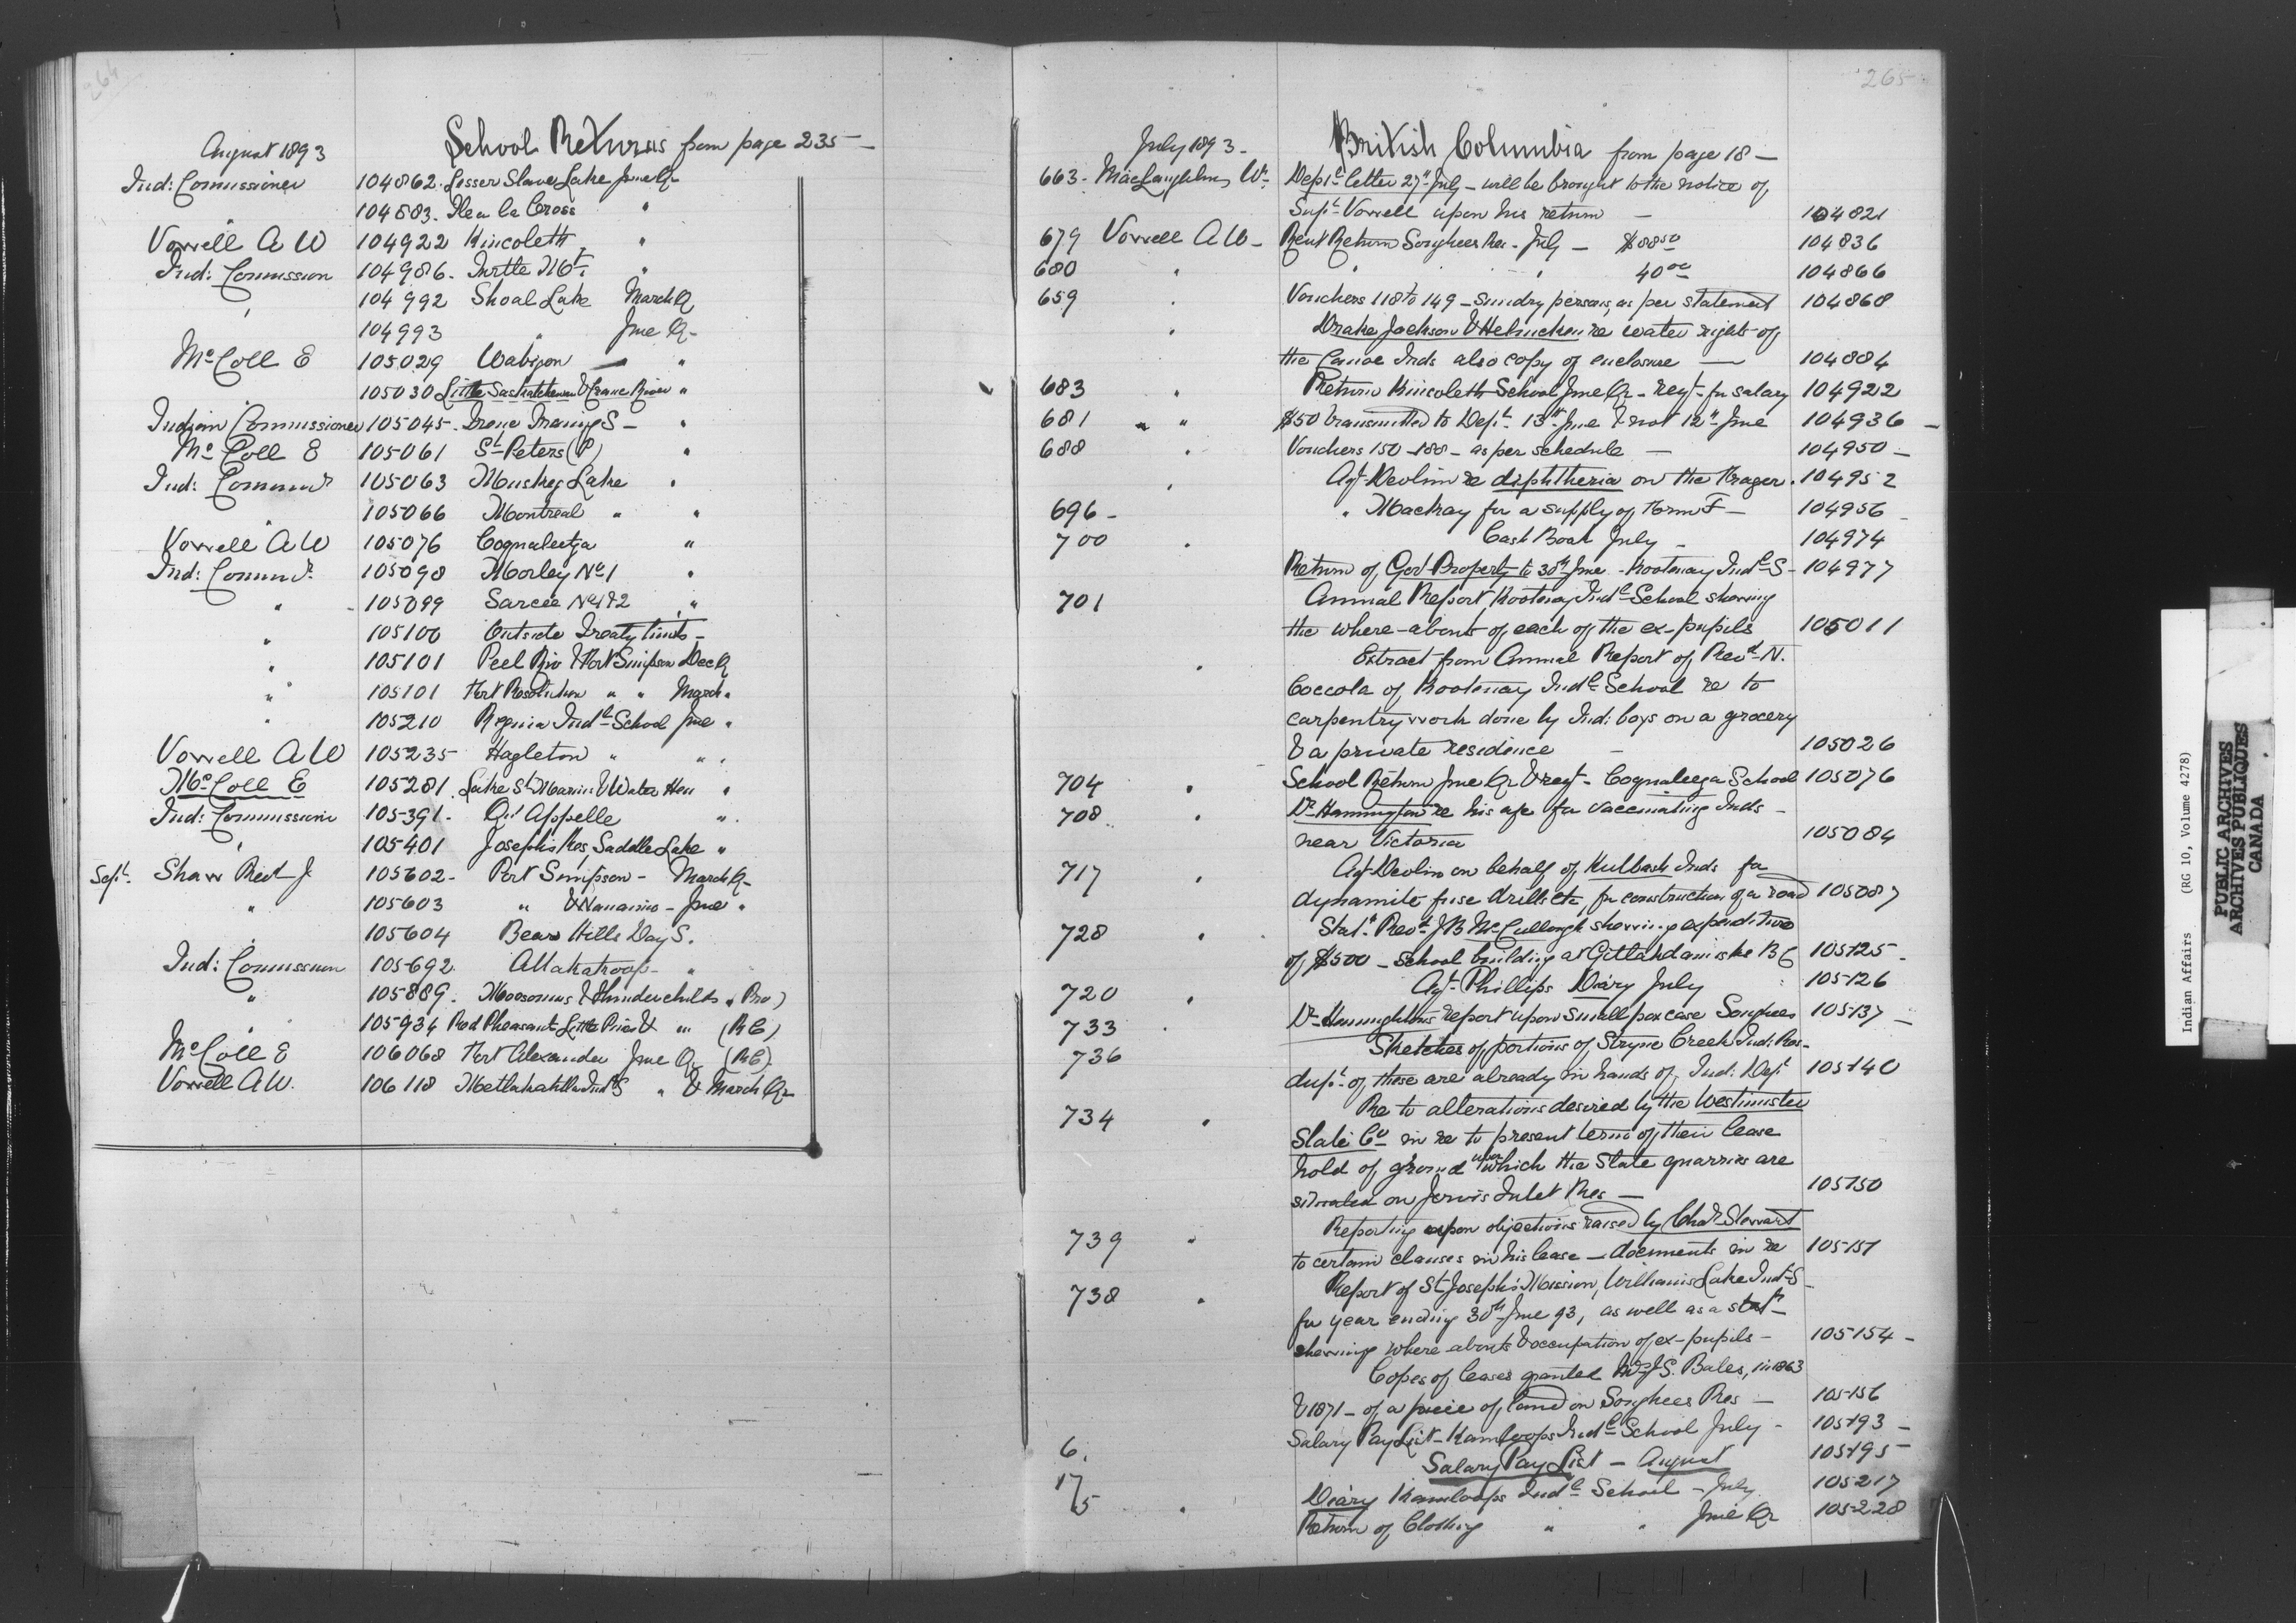 264
August 1893 School Returns from page 235 —
Ind: Comissioner 104862. Lesser Slave Lake June Qr
" 104883. Ile a la Cross "
Vowell A W 104922 Kincolett "
Ind: Comission 104986. Turtle Mt. "
" 104992 Shoal Lake March Q
104993 " June Qr
McColl E 105029 Wabigon — "
105030 Little Saskatchewan & Crane River "
Indian Commissioner 105045. Irene Traing S — "
McColl E 105061 St Peters (P) "
Ind: Commr 105063 Muskeg Lake "
" 105066 Montreal " "
Vowell A W 105076 Coqualeetza "
Ind: Commr. 105098 Morley No 1 "
" 105099 Sarcee No 1 & 2 "
" 105100 Outside Treaty limits —
" 105101 Peel Riv & Fort Simpson Dec Q
" 105101 Fort Resolution " " March "
" 105210 Regina Indl School June "
Vowell A W 105235 Hagleton " " "
McColl E 105281. Lake St Martin & Water Hen "
Ind: Commission 105391. Qu'Appelle "
" 105401 Josephs Res, Saddle Lake "
Sept. Shaw Revd J 105602 - Port Simpson - March Q-
" 105603 " & Nanaimo - June "
" 105604 Bears Hills Day S.
Ind: Comission 105692. Attakakoop "
" 105889. Moosomins & Thunderchilds " Pro)
" 105934 Red Pheasant Little Pines & " (RC)
McColl E 106068 Fort Alexander June Qr (RC)
Vowell A W. 106118 Metlakahtla Indl S " & March Qr
265
July 1893 - British Columbia from page 18 —
663 - MacLaughlin, W. Deptl letter 27th July - will be brought to the notice of
Supt. Vowell upon his return — 104821
679 Vowell A W - Rent Return Songhees Res - July — $88.50 104836
680 " " " 40.00 104866
659 " Vouchers 118 to 149 - Sundry persons, as per statement 104868
" Drake Jackson & Helmcken re water rights of
the Canoe Inds also copy of enclosure — 104884
683 " Return Kincoleth School June Qr - Reqt. for salary 104922
681 " " $50 transmitted to Dept. 13th June & not 12th June 104936 —
688 " Vouchers 150 - 188 - as per schedule — 104950 —
" Agt Devlin re diphtheria on the Fraser. 104952
696 - " Mackay for a supply of Form F — 104956
700 " Cash Book July — 104974
Return of Govt Property to 30th June - Kootenay Indl S - 104977
701 Annual Report, Kootenay Indl School showing
the where-abouts of each of the ex-pupils 105011
" Extract from Annual Report of Revd N.
Coccola of Kootenay Indl School re to
carpentry work done by Ind: boys on a grocery
& a private residence — 105026
704 " School Return June Qr & reqt - Coqualeetza School 105076
708 " Dr Hannington re his a/c for vaccinating Inds -
near Victoria 105084
717 " Agt Devlin on behalf of Inds for
dynamite fuse drills etc, for construction of a road 105087
728 " Stat. Revd J B McCullough showing expenditure
of $500 - School building at Gitlakdamiske BC 105125 -
720 " Agt. Phillips Diary July 105126
733 " Dr Hanningtons report upon Small pox case Songhees 105137 —
736 Sketches of portions of Stryne Creek Ind: Res -
dupt. of these are already in hands of Ind: Dept 105140
734 " Re to alterations desired by the Westminster
Slate Co in re to present terms of their lease
hold of ground upon which the Slate quarries are
situated on Jervis Inlet Res — 105150
739 " Reporting upon objections raised by Chas Stewart
to certain clauses in his lease - documents in re 105151
738 " Report of St Joseph's Mission, Williams Lake Ind S -
for year ending 30th June 93, as well as a stat
showing where-abouts & occupation of ex-pupils - 105154 -
Copes of leases granted J S. Bales, in 1863
& 1871 - of a piece of land on Songhees Res — 105156
Salary Pay List - Kamloops Indl School July - 105193 —
6. Salary Pay List - August 105195
17/5 " Diary Kamloops Indl School - July 105217
Return of Clothing " " June Qr 105228
Indian Affairs (RG 10, Volume 4278)
PUBLIC ARCHIVES
ARCHIVES PUBLIQUES
CANADA